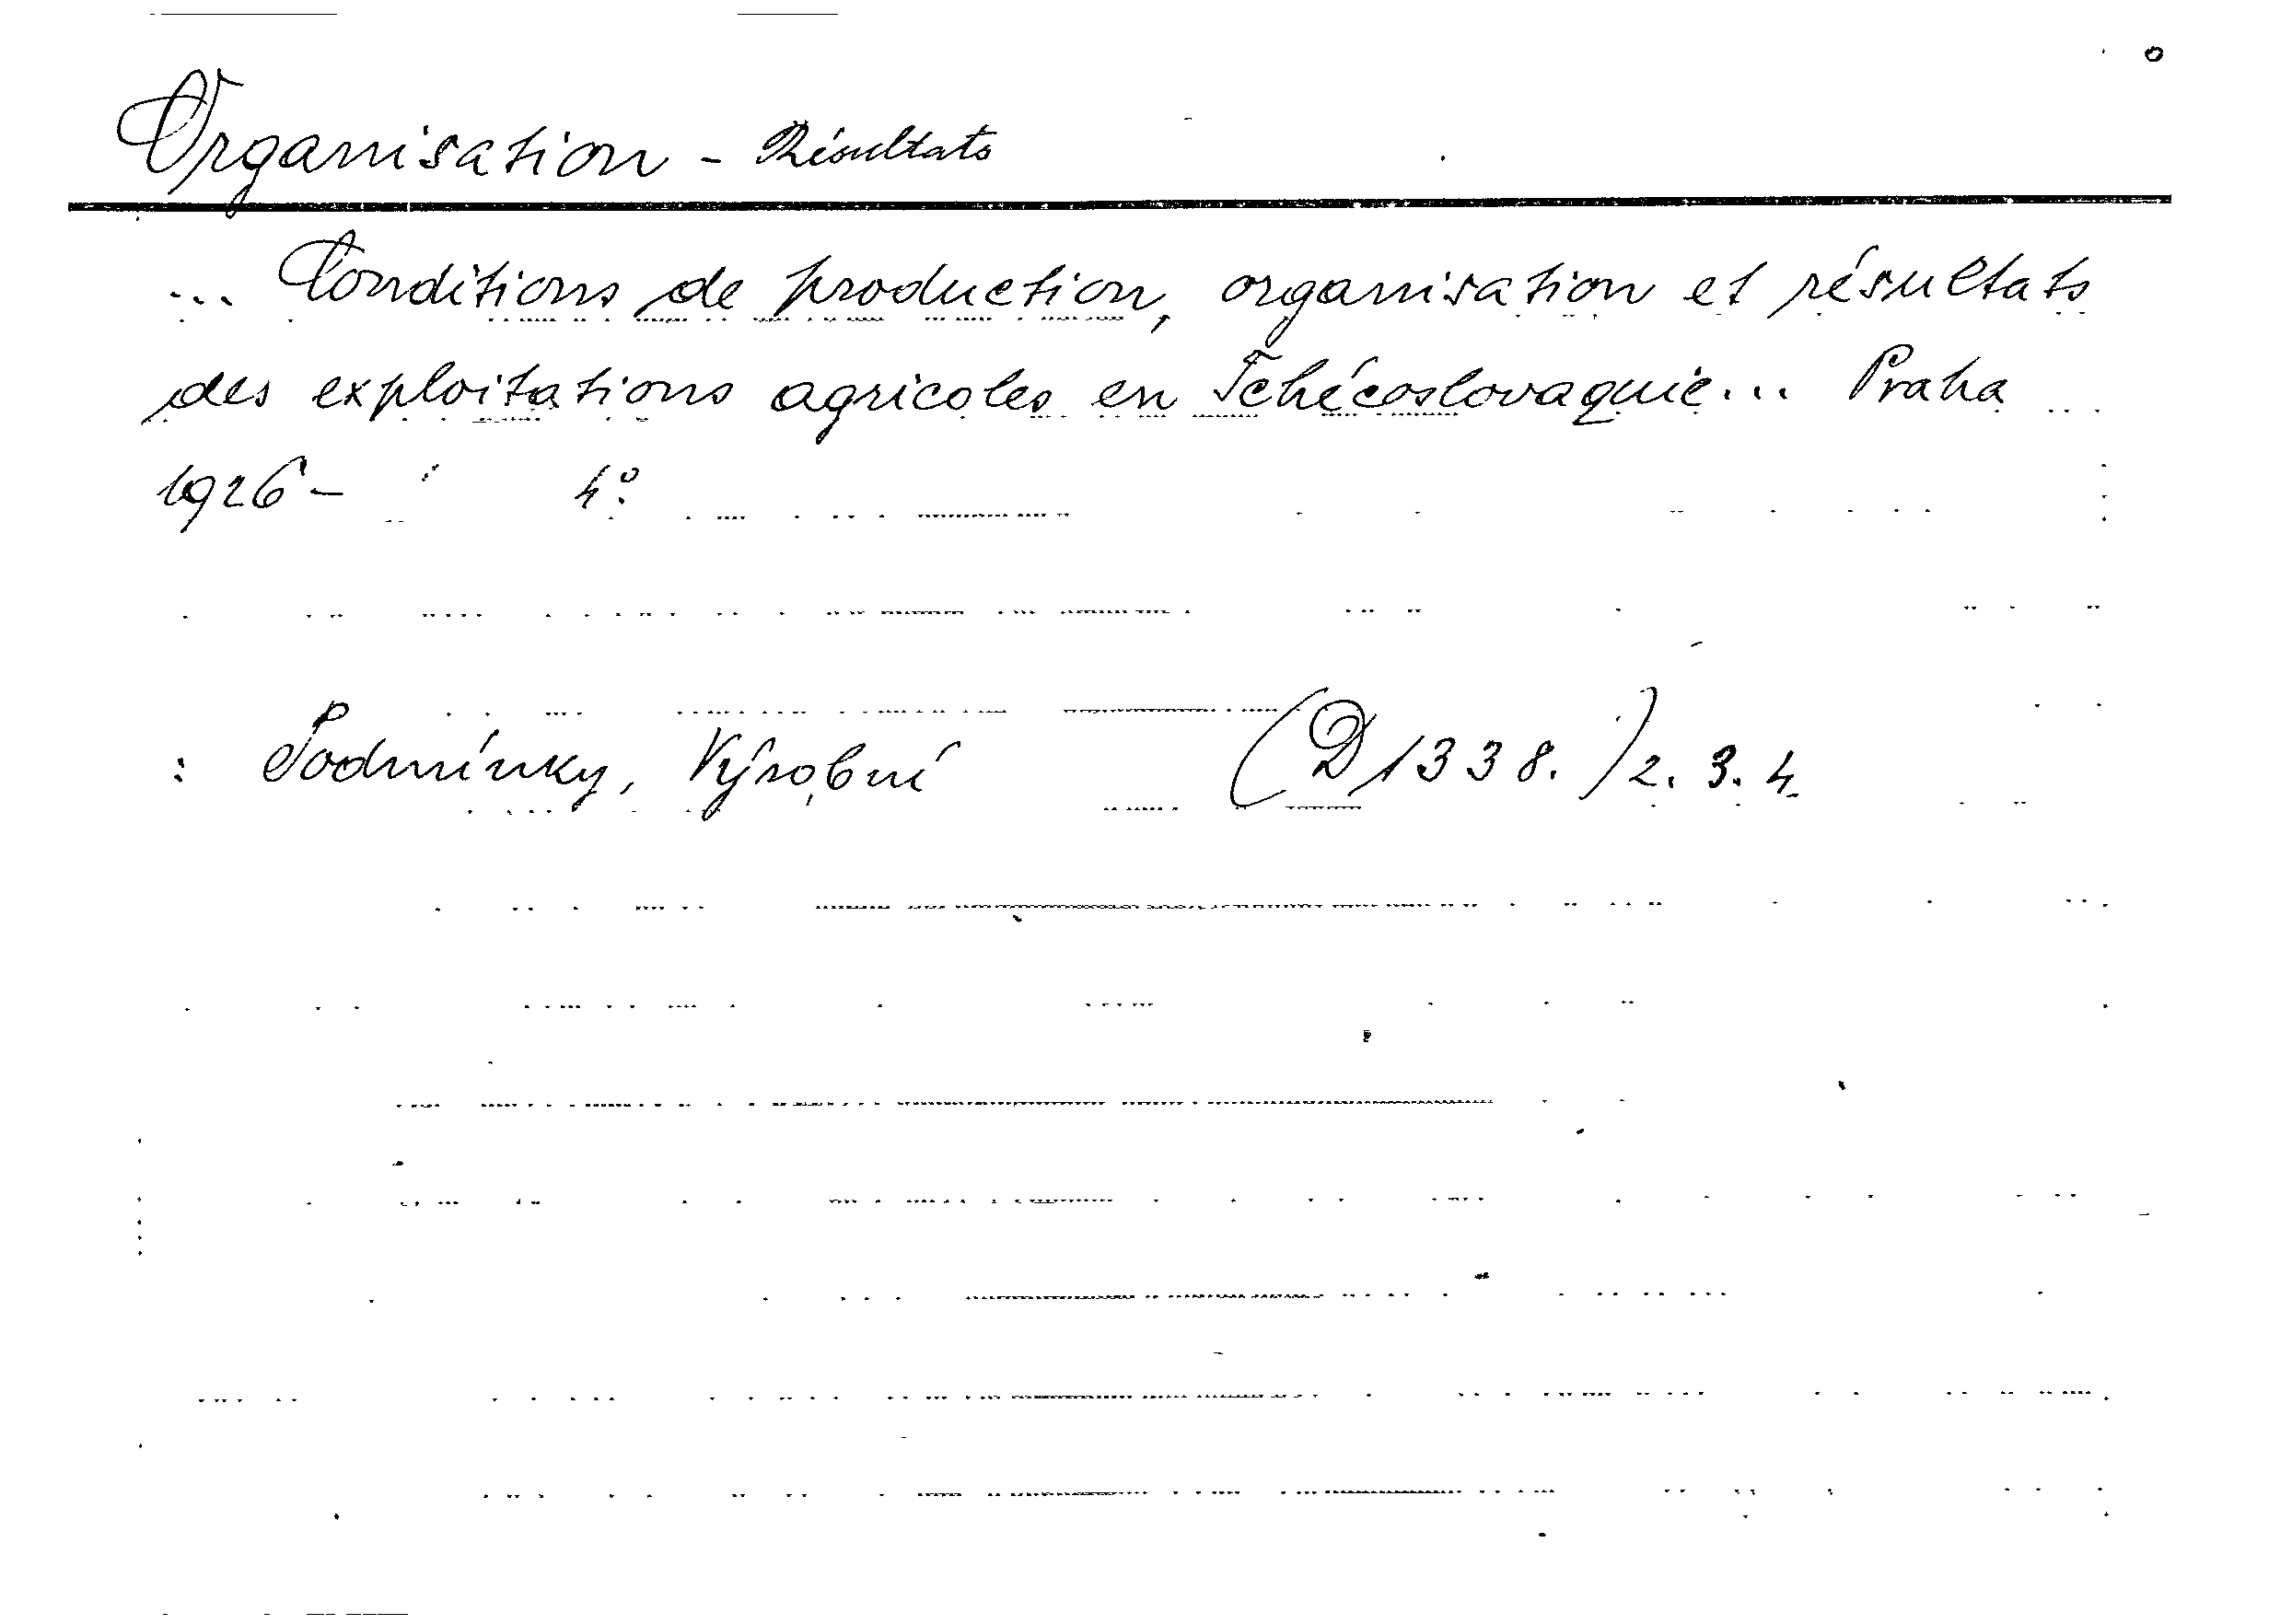 Organisation - Résultats
... Conditions de production, organisation et résultats
des exploitations agricoles en Tchécoslovaquie... Praha
1926- 4°.
: Podmínky, Výrobní (D 1338.) 2. 3. 4.